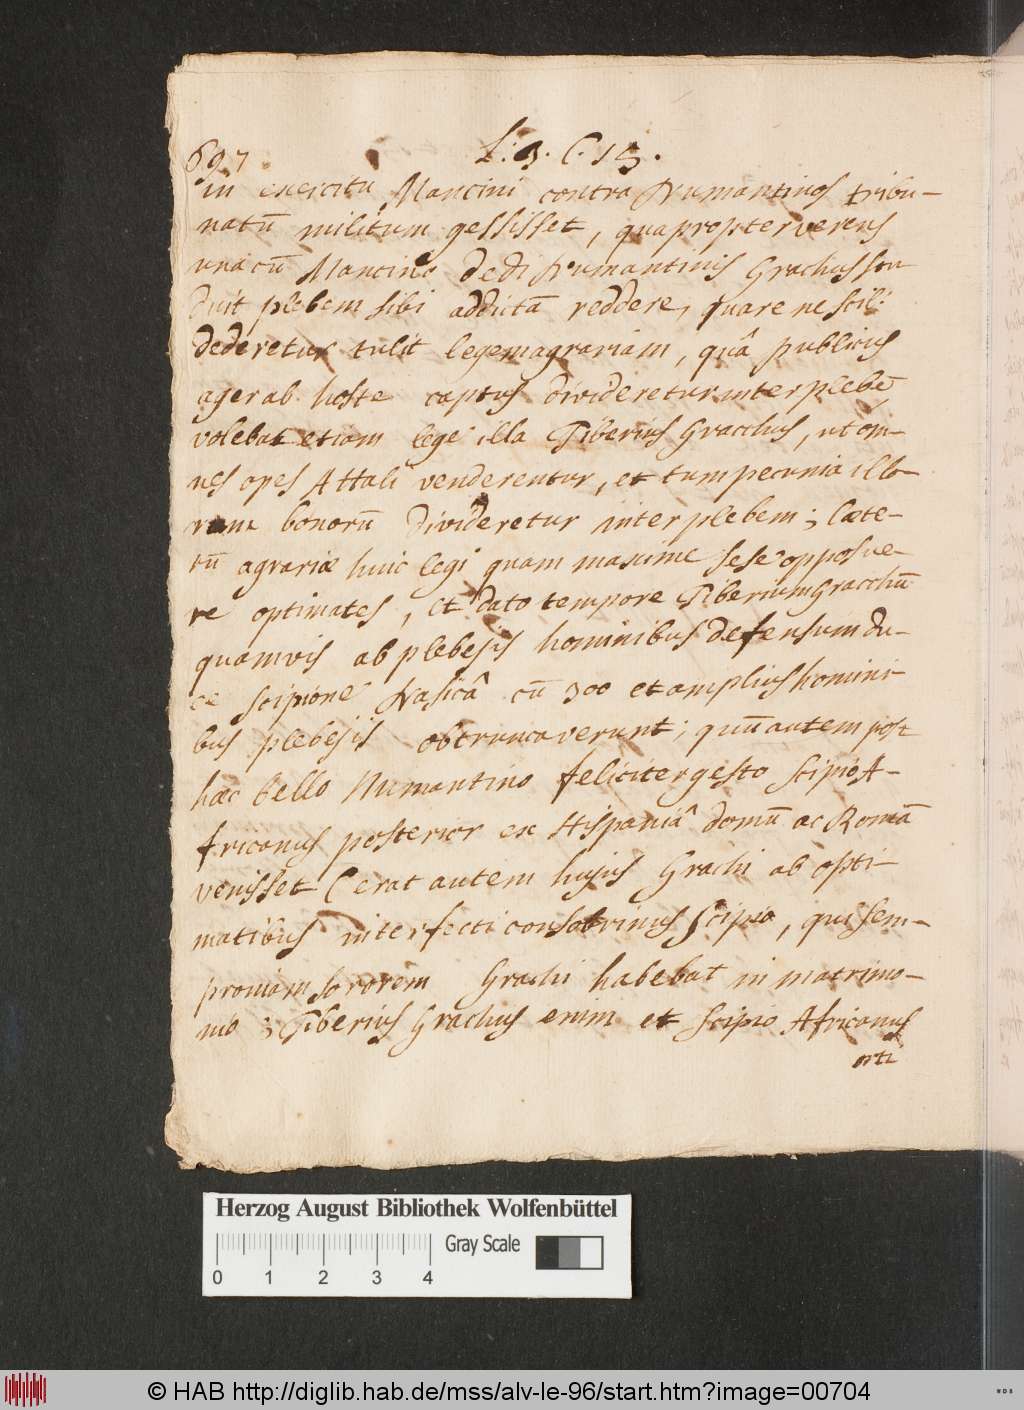 697
L: 3. C. 15.
in exercitu Mancini contra Numantinos tribu-
natū militum gessisset, quapropter verens
unā cū Mancino dedi Numantinis Grachus stu
duit plebem sibi addictā reddere, quare ne scil:
dederetur tulit legem agrariam, quâ publicus
ager ab hoste captus divideretur inter plebē,
volebat etiam lege illa Tiberius Gracchus, ut om-
nes opes Attali venderentur, et tum pecunia illo
rum bonorū divideretur inter plebem; Cæte-
rū agrariæ huic legi quam maxime sese opposue-
re optimates, et dato tempore Tiberium Gracchū
quamvis ab plebejis hominibus defensum du-
ce Scipione Nasicâ cū 300 et amplius homini
bus plebejis obtruncaverunt; quū autem post
hæc bello Numantino feliciter gesto Scipio A-
fricanus posterior ex Hispaniâ domū ac Romā
venisset (erat autem hujus Grachi ab opti-
matibus interfecti consobrinus Scipio, qui Sem-
proniam sororem Grachi habebat in matrimo-
nio; Tiberius Grachus enim et Scipio Africanus
orti
Herzog August Bibliothek Wolfenbüttel
Gray Scale
0 1 2 3 4
© HAB http://diglib.hab.de/mss/alv-le-96/start.htm?image=00704